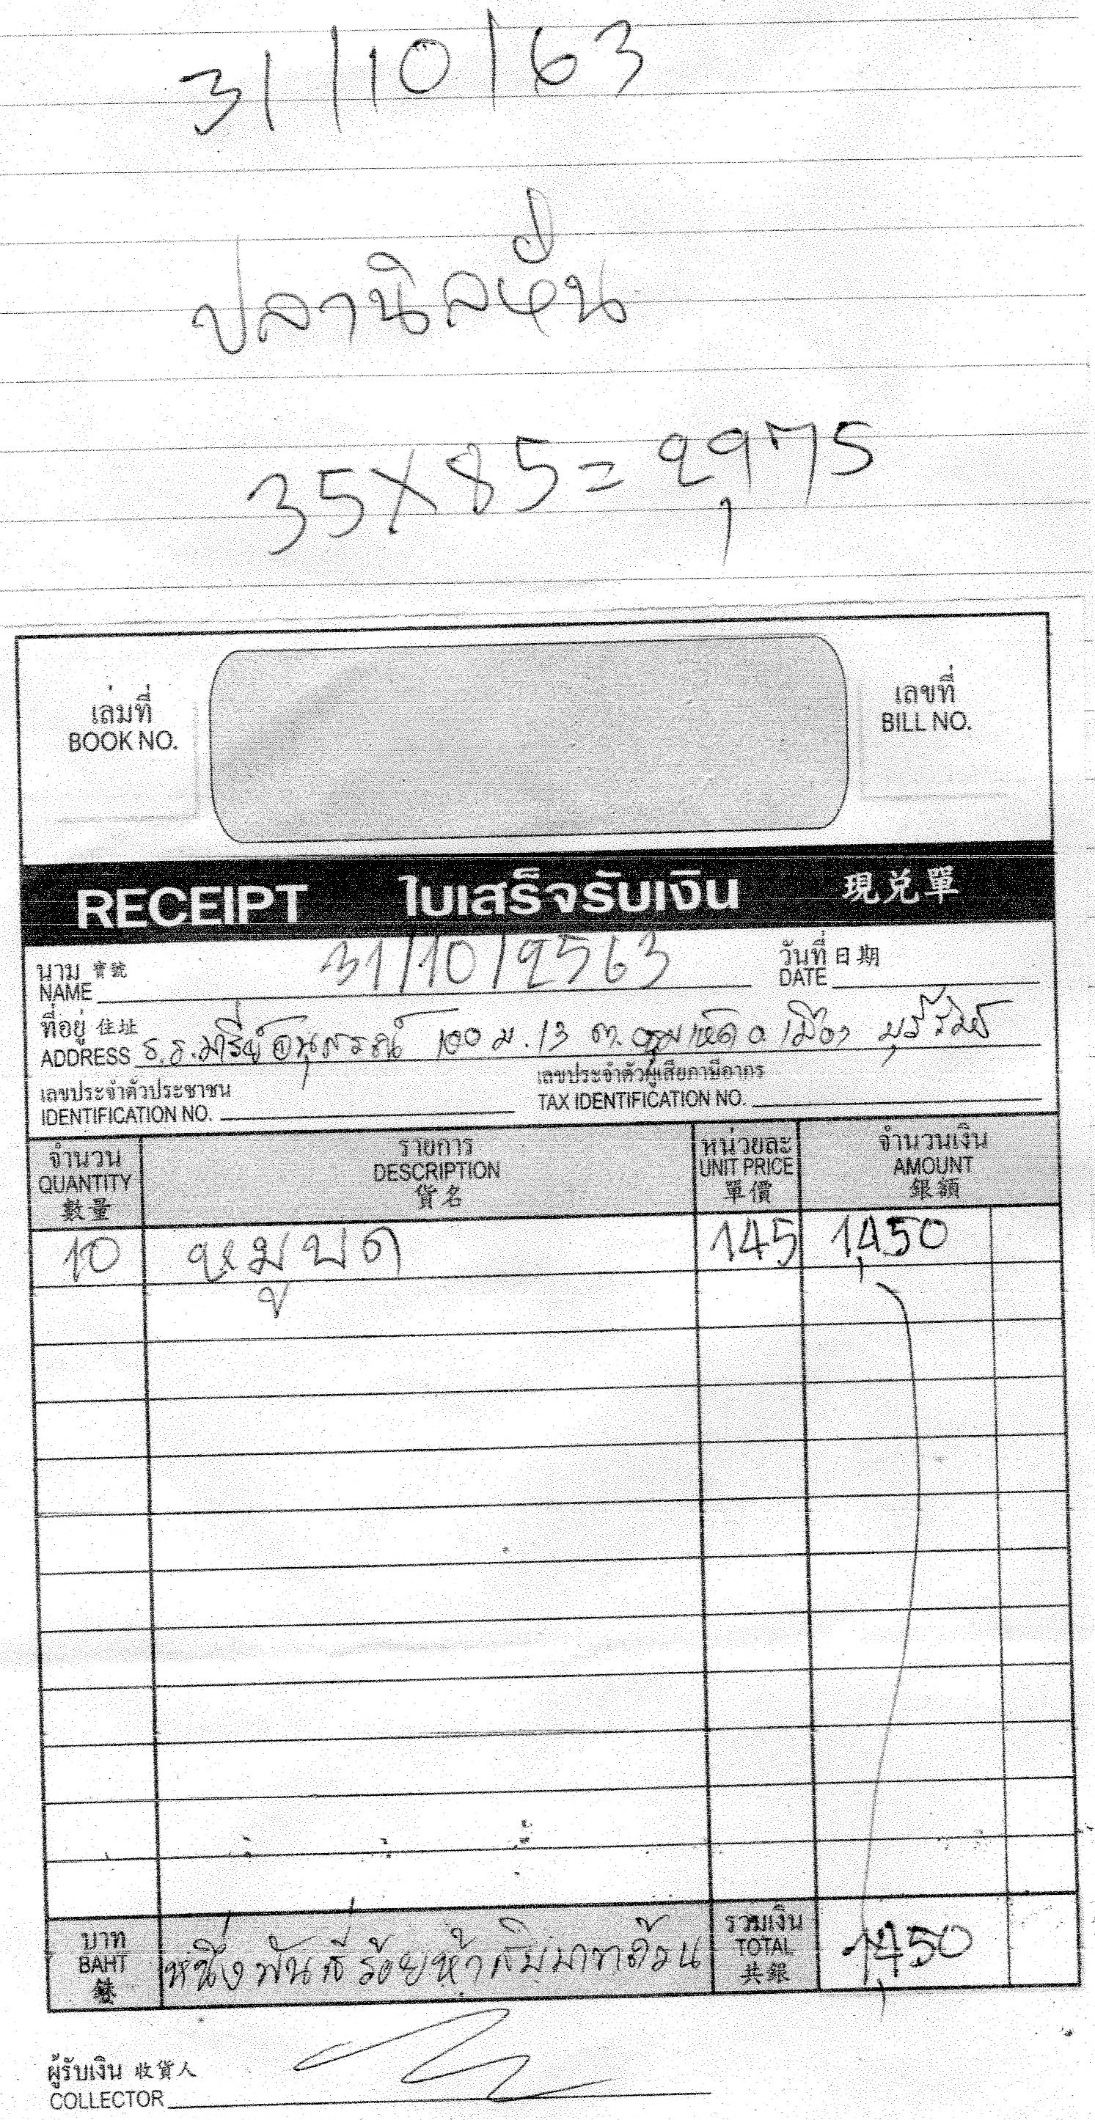 31/10/63
ปลานิลหั่น
35X85=2,975
เล่มที่
BOOK NO.
เลขที่
BILL NO.
RECEIPT ใบเสร็จรับเงิน 現兌單
นาม 寶號
NAME 31/10/2563
วันที่ 日期
DATE
ที่อยู่ 住址
ADDRESS ร.ร.มารีย์อนุสรณ์ 100 ม.13 ต. อ.เมือง บุรีรัมย์
เลขประจำตัวประชาชน
IDENTIFICATION NO.
เลขประจำตัวผู้เสียภาษีอากร
TAX IDENTIFICATION NO.
จำนวน รายการ หน่วยละ จำนวนเงิน
QUANTITY DESCRIPTION UNIT PRICE AMOUNT
數量 貨名 單價 銀額
10 หมูบด 145 1,450
บาท
BAHT
銖
หนึ่งพันสี่ร้อยห้าสิบบาทถ้วน
รวมเงิน
TOTAL
共銀
1,450
ผู้รับเงิน 收貨人
COLLECTOR